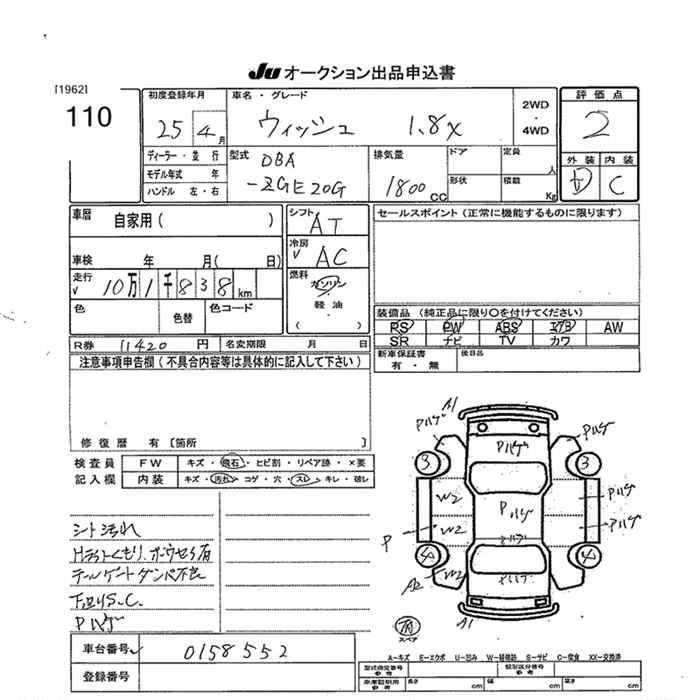 JU オークション出品申込書
[1962]
110
初度登録年月
25 年 4 月
車名・グレード
ウィッシュ 1.8X
2WD
・
4WD
評価点
2
外装 内装
D C
ディーラー・並行
モデル年式 年
ハンドル 左・右
型式
DBA
-ZGE20G
排気量
1800 CC
ドア
形状
定員
人
積載
Kg
車暦
自家用( )
車検 年 月( 日)
走行
10万1千838 km
色
色替
色コード
シフト
AT
冷房
AC
燃料
ガソリン
・
軽油
( )
セールスポイント(正常に機能するものに限ります)
装備品(純正品に限り○を付けてください)
PS PW ABS エアB AW
SR ナビ TV カワ
R券 11420 円
名変期限 月 日
新車保証書
有・無
後日品
注意事項申告欄(不具合内容等は具体的に記入して下さい)
修復歴 有[箇所 ]
検査員
記入欄
FW
キズ・飛石・ヒビ割・リペア跡・×要
内装
キズ・汚れ・コゲ・穴・スレ・キレ・破レ
シート汚れ
Hライトくもり.ホーウセウ有
テールゲートダンパ不良
下回りS.C.
Pハゲ
A1
Pハゲ
Pハゲ
Pハゲ
3
3
W2
P
ハゲ
Pハゲ
P
W2
Pハゲ
4
4
A2
W2
Pハゲ
A1
スペア
A-キズ E-エクボ U-凹み W-補修跡 S-サビ C-腐食 XX-交換済
車台番号
0158552
登録番号
型式指定番号
参考
類別区分番号
参考
車庫証明用
参考
長さ cm
幅 cm
高さ cm